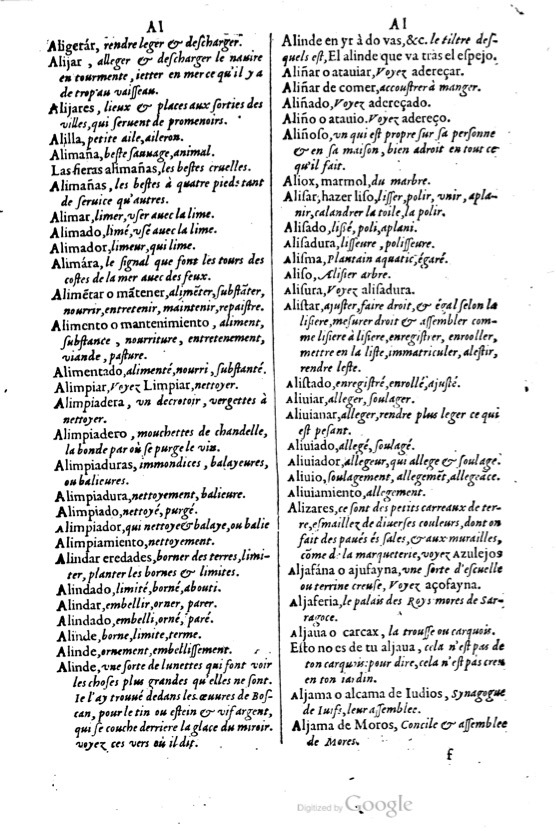 Al
Aligerár, rendre leger & descharger.
Alijar, alleger & descharger le nauire
en tourmente, ietter en mer ce qu'il y a
de trop au vaisseau.
Alijares, lieux & places aux sorties des
villes, qui seruent de promenoirs.
Alilla, petite aile, aileron.
Alimaña, beste sauuage, animal.
Las fieras alimañas, les bestes cruelles.
Alimañas, les bestes à quatre pieds tant
de seruice qu'autres.
Alimar, limer, vser auec la lime.
Alimado, limé, vsé auec la lime.
Alimador, limeur, qui lime.
Alimára, le signal que font les tours des
costes de la mer auec des feux.
Alimẽtar o mãtener, alimẽter, substãter,
nourrir, entretenir, maintenir, repaistre.
Alimento o mantenimiento, aliment,
substance, nourriture, entretenement,
viande, pasture.
Alimentado, alimenté, nourri, substanté.
Alimpiar, Voyez Limpiar, nettoyer.
Alimpiadera, vn decrotoir, vergettes à
nettoyer.
Alimpiadero, mouchettes de chandelle,
la bonde par où se purge le vin.
Alimpiaduras, immondices, balayeures,
ou balieures.
Alimpiadura, nettoyement, balieure.
Alimpiado, nettoyé, purgé.
Alimpiador, qui nettoye & balaye, ou balie
Alimpiamiento, nettoyement.
Alindar eredades, borner des terres, limi-
ter, planter les bornes & limites.
Alindado, limité, borné, abouti.
Alindar, embellir, orner, parer.
Alindado, embelli, orné, paré.
Alinde, borne, limite, terme.
Alinde, ornement, embellissement.
Alinde, vne sorte de lunettes qui font voir
les choses plus grandes qu'elles ne sont.
Ie l'ay trouué dedans les œuures de Bos-
can, pour le tin ou estein & vif argent,
qui se couche derriere la glace du miroir.
voyez ces vers où il dit.
Al
Alinde en yr à do vas, &c. le tiltre des-
quels est, El alinde que va tras el espejo.
Aliñar o atauiar, Voyez adereçar.
Aliñar de comer, accoustrer à manger.
Aliñado, Voyez adereçado.
Aliño o atauio. Voyez adereço.
Aliñoso, vn qui est propre sur sa personne
& en sa maison, bien adroit en tout ce
qu'il fait.
Aliox, marmol, du marbre.
Alisar, hazer liso, lisser, polir, vnir, apla-
nir, calandrer la toile, la polir.
Alisado, lissé, poli, aplani.
Alisadura, lisseure, polisseure.
Alisma, Plantain aquatic, égaré.
Aliso, Alisier arbre.
Alisura, Voyez alisadura.
Alistar, ajuster, faire droit, & égal selon la
lisiere, mesurer droit & assembler com-
me lisiere à lisiere, enregistrer, enrooller,
mettre en la liste, immatriculer, alestir,
rendre leste.
Alistado, enregistré, enrollé, ajusté.
Aliuiar, alleger, soulager.
Aliuianar, alleger, rendre plus leger ce qui
est pesant.
Aliuiado, allegé, soulagé.
Aliuiador, allegeur, qui allege & soulage.
Aliuio, soulagement, allegemẽt, allegeãce.
Aliuiamiento, allegement.
Alizares, ce sont des petits carreaux de ter-
re, esmaillez de diuerses couleurs, dont on
fait des paués és sales, & aux murailles,
cõme de la marqueterie, voyez Azulejos
Aljafána o ajufayna, vne sorte d'escuelle
ou terrine creuse, Voyez açofayna.
Aljaferia, le palais des Roys mores de Sar-
ragoce.
Aljaua o carcax, la trousse ou carquois.
Esto no es de tu aljaua, cela n'est pas de
ton carquois: pour dire, cela n'est pas creu
en ton iardin.
Aljama o alcama de Iudios, Synagogue
de Iuifs, leur assemblee.
Aljama de Moros, Concile & assemblee
de Mores.
f
Digitized by Google